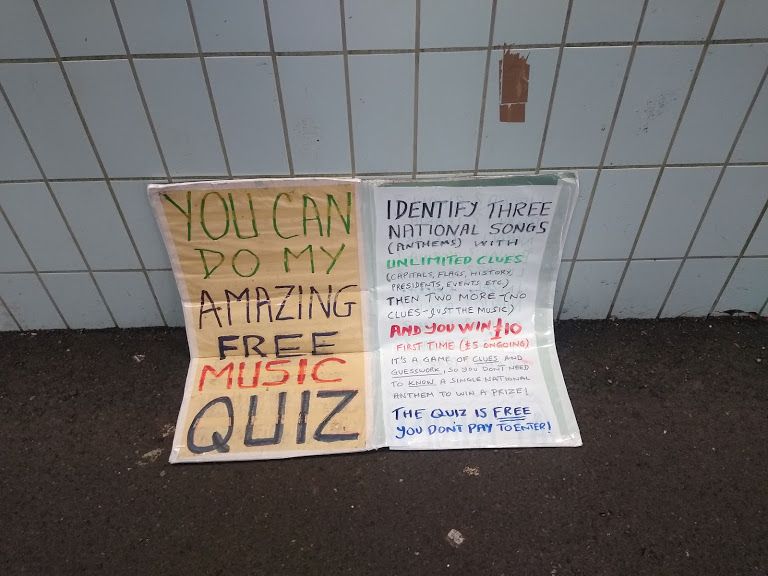 YOU CAN
DO MY
AMAZING
FREE
MUSIC
QUIZ
IDENTIFY THREE
NATIONAL SONGS
(ANTHEMS) WITH
UNLIMITED CLUES
(CAPITALS, FLAGS, HISTORY,
PRESIDENTS, EVENTS ETC.)
THEN TWO MORE - (NO
CLUES - JUST THE MUSIC)
AND YOU WIN £10
FIRST TIME (£5 ONGOING)
IT'S A GAME OF CLUES AND
GUESSWORK, SO YOU DON'T NEED
TO KNOW A SINGLE NATIONAL
ANTHEM TO WIN A PRIZE!
THE QUIZ IS FREE
YOU DON'T PAY TO ENTER!